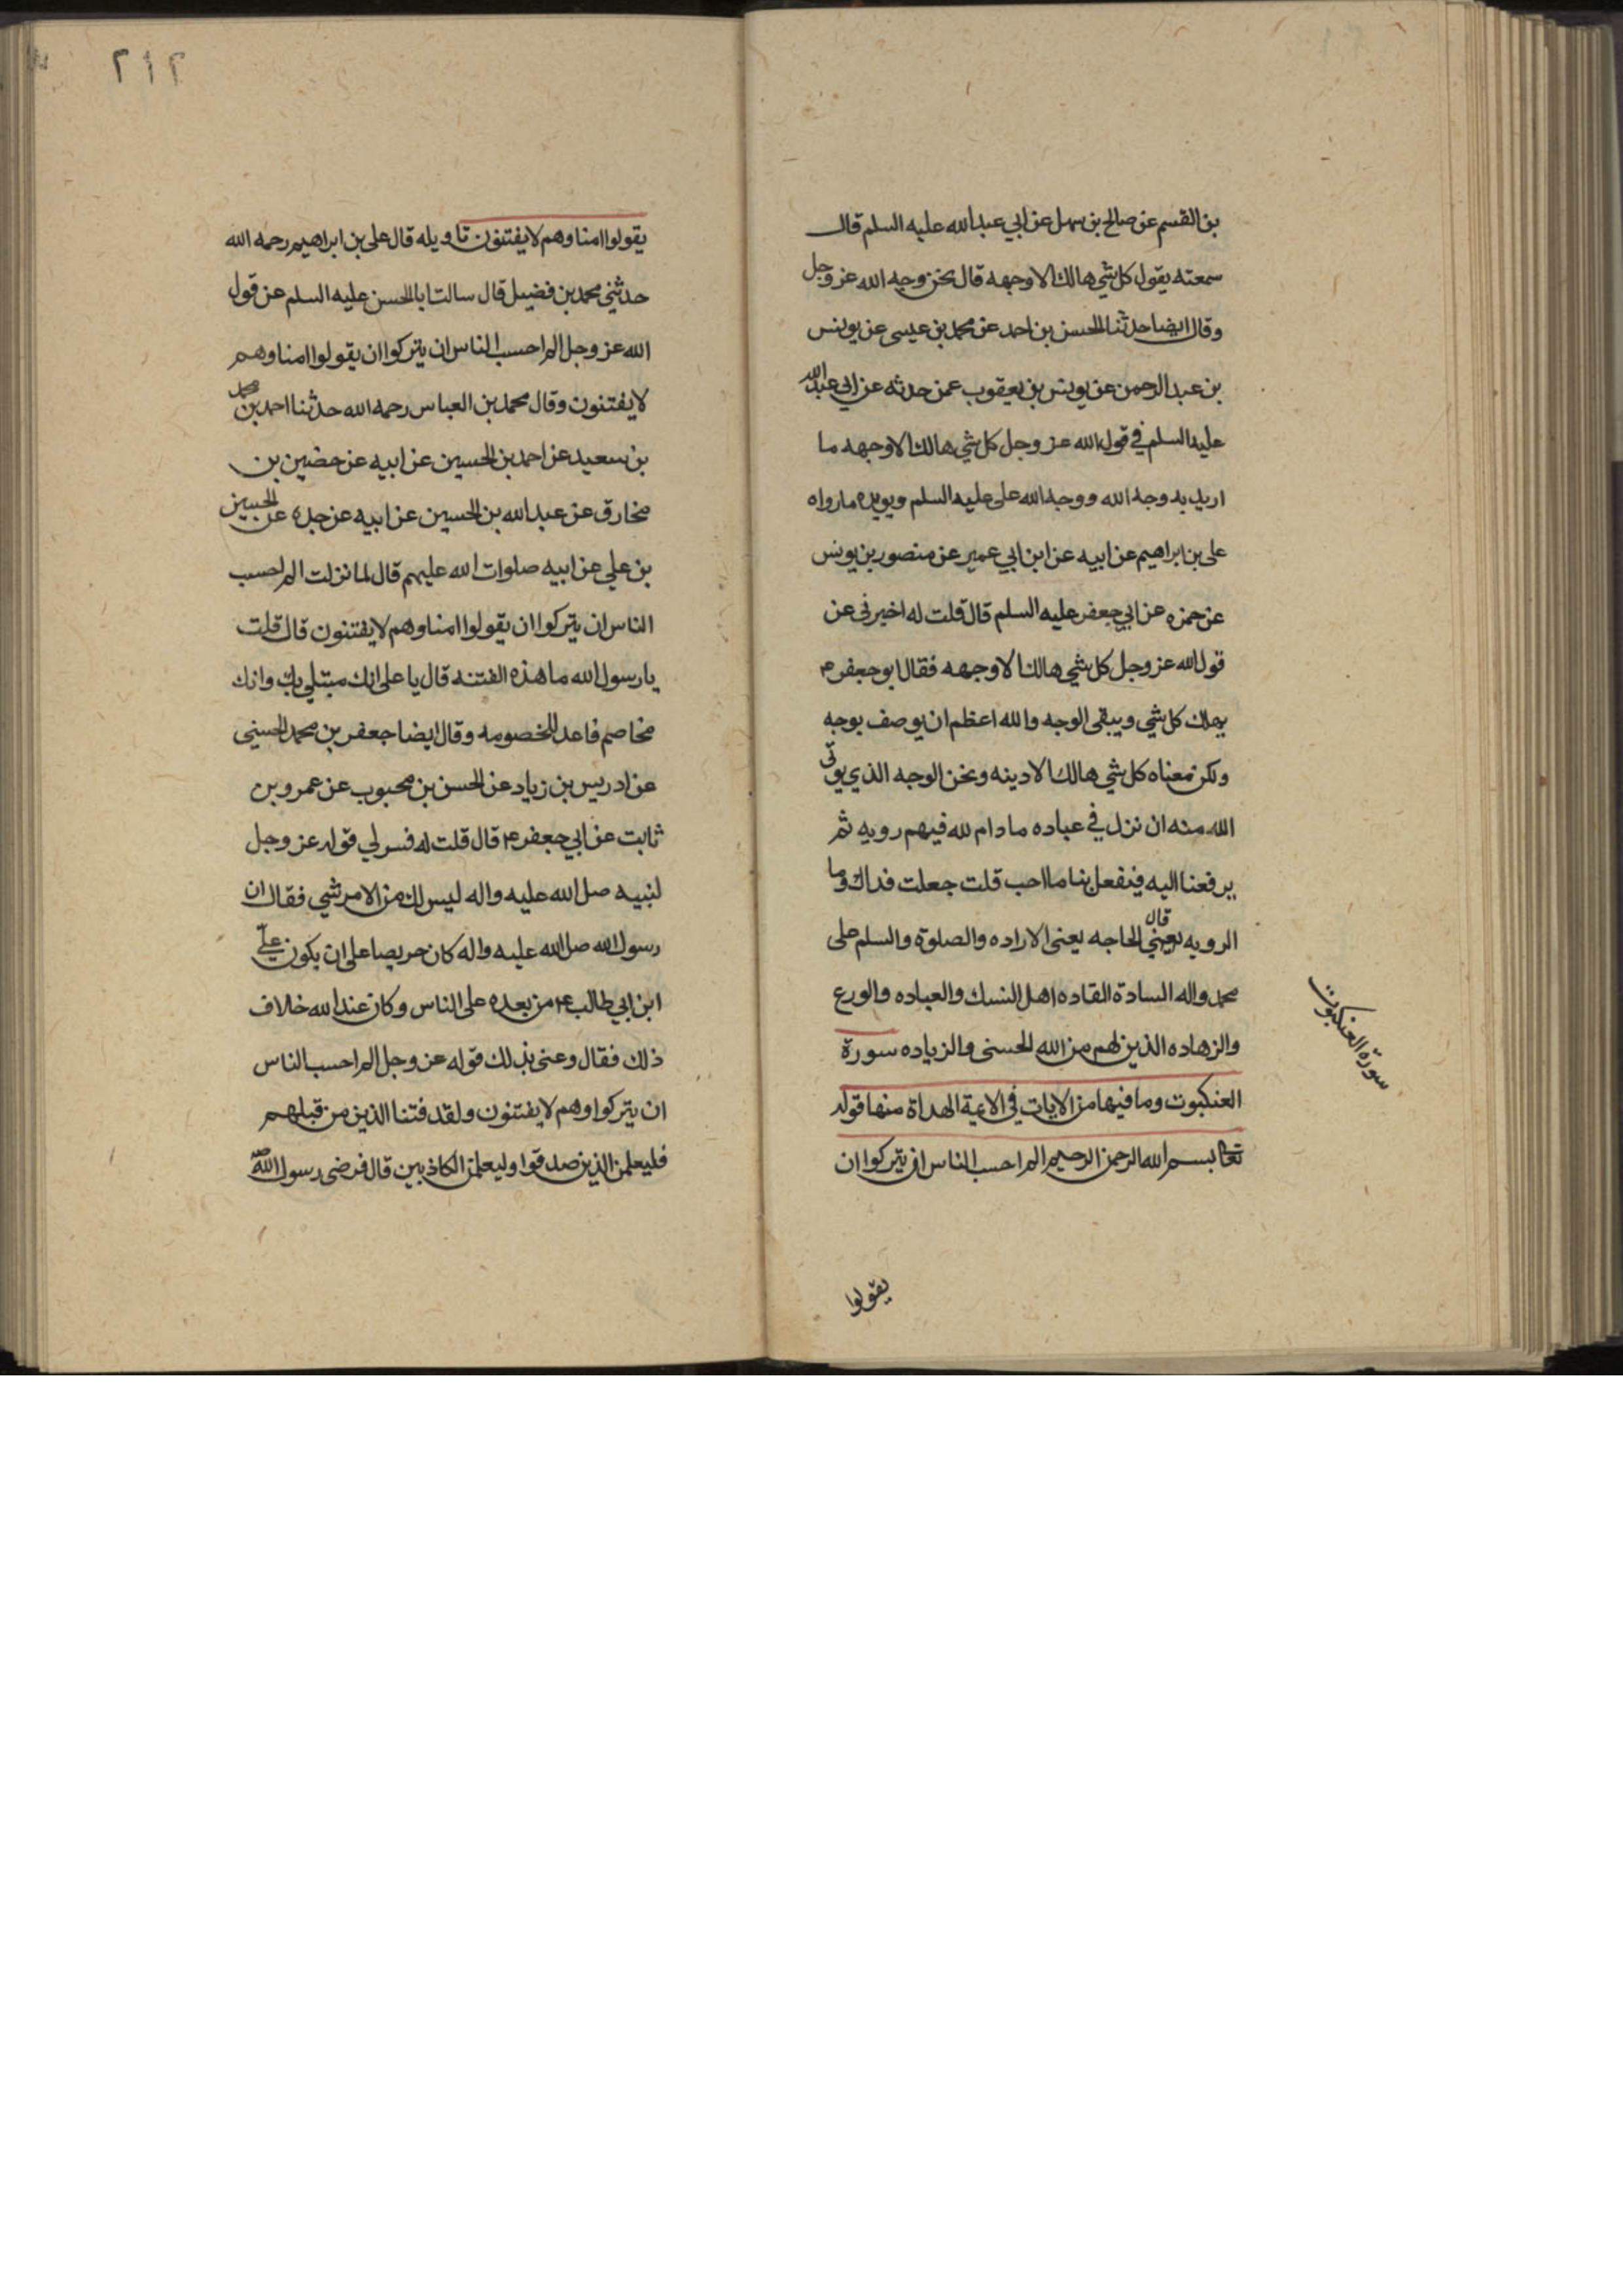 بن القسم عن صالح بن سهل عن ابي عبد الله عليه السلم قال
سمعته يقول كل شي هالك الا وجهه قال نحن وجه الله عز وجل
وقال ايضا حدثنا الحسن بن احمد عن محمد بن عيسى عن يونس
بن عبد الرحمن عن يونس بن يعقوب عمن حدثه عن ابي عبد الله
عليه السلم في قول الله عز وجل كل شي هالك الا وجهه ما
اريد به وجه الله ووجه الله علي عليه السلم ويويده ما رواه
على بن ابراهيم عن ابيه عن ابن ابي عمير عن منصور بن يونس
عن حمزه عن ابي جعفر عليه السلم قال قلت له اخبرني عن
قول الله عز وجل كل شي هالك الا وجهه فقال ابو جعفر ع
يهلك كل شي ويبقى الوجه والله اعظم ان يوصف بوجه
ولكن معناه كل شي هالك الا دينه ونحن الوجه الذي يوتى
الله منه ان نزل في عباده ما دام لله فيهم رويه ثم
يرفعنا اليه فيفعل بنا ما احب قلت جعلت فداك وما
الرويه قال يعني الحاجه يعنى الاراده والصلوة والسلم على
محمد واله السادة القاده اهل النسك والعباده والورع
والزهاده الذين لهم من الله الحسنى والزياده سورة
العنكبوت وما فيها من الايات في الائمة الهداة منها قوله
تعا بسم الله الرحمن الرحيم الم احسب الناس ان يتركوا ان
يقولوا
سورة العنكبوت
٢١٢
يقولوا امنا وهم لا يفتنون تاويله قال على بن ابراهيم رحمه الله
حدثني محمد بن فضيل قال سالت ابا الحسن عليه السلم عن قول
الله عز وجل الم احسب الناس ان يتركوا ان يقولوا امنا وهم
لا يفتنون وقال محمد بن العباس رحمه الله حدثنا احمد بن محمد
بن سعيد عن احمد بن الحسين عن ابيه عن حضين بن
مخارق عن عبد الله بن الحسين عن ابيه عن جده عن الحسين
بن علي عن ابيه صلوات الله عليهم قال لما نزلت الم احسب
الناس ان يتركوا ان يقولوا امنا وهم لا يفتنون قال قلت
يا رسول الله ما هذه الفتنه قال يا على انك مبتلي بك وانك
مخاصم فاعد للخصومه وقال ايضا جعفر بن محمد الحسني
عن ادريس بن زياد عن الحسن بن محبوب عن عمرو بن
ثابت عن ابي جعفر ع قال قلت له فسر لي قوله عز وجل
لنبيه صل الله عليه واله ليس لك من الامر شي فقال ان
رسول الله صل الله عليه واله كان حريصا على ان يكون علي
ابن ابي طالب ع من بعده على الناس وكان عند الله خلاف
ذلك فقال وعنى بذلك قوله عز وجل الم احسب الناس
ان يتركوا وهم لا يفتنون ولقد فتنا الذين من قبلهم
فليعلمن الذين صدقوا وليعلمن الكاذبين قال فرضى رسول الله